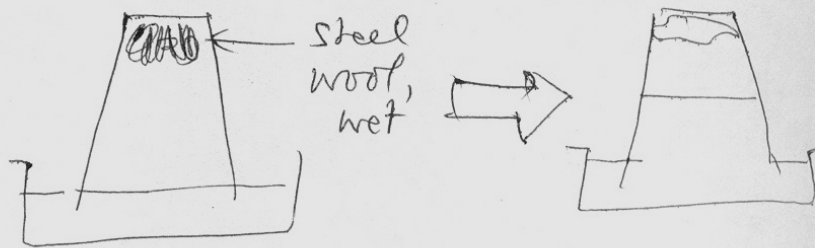 steel
wool,
wet